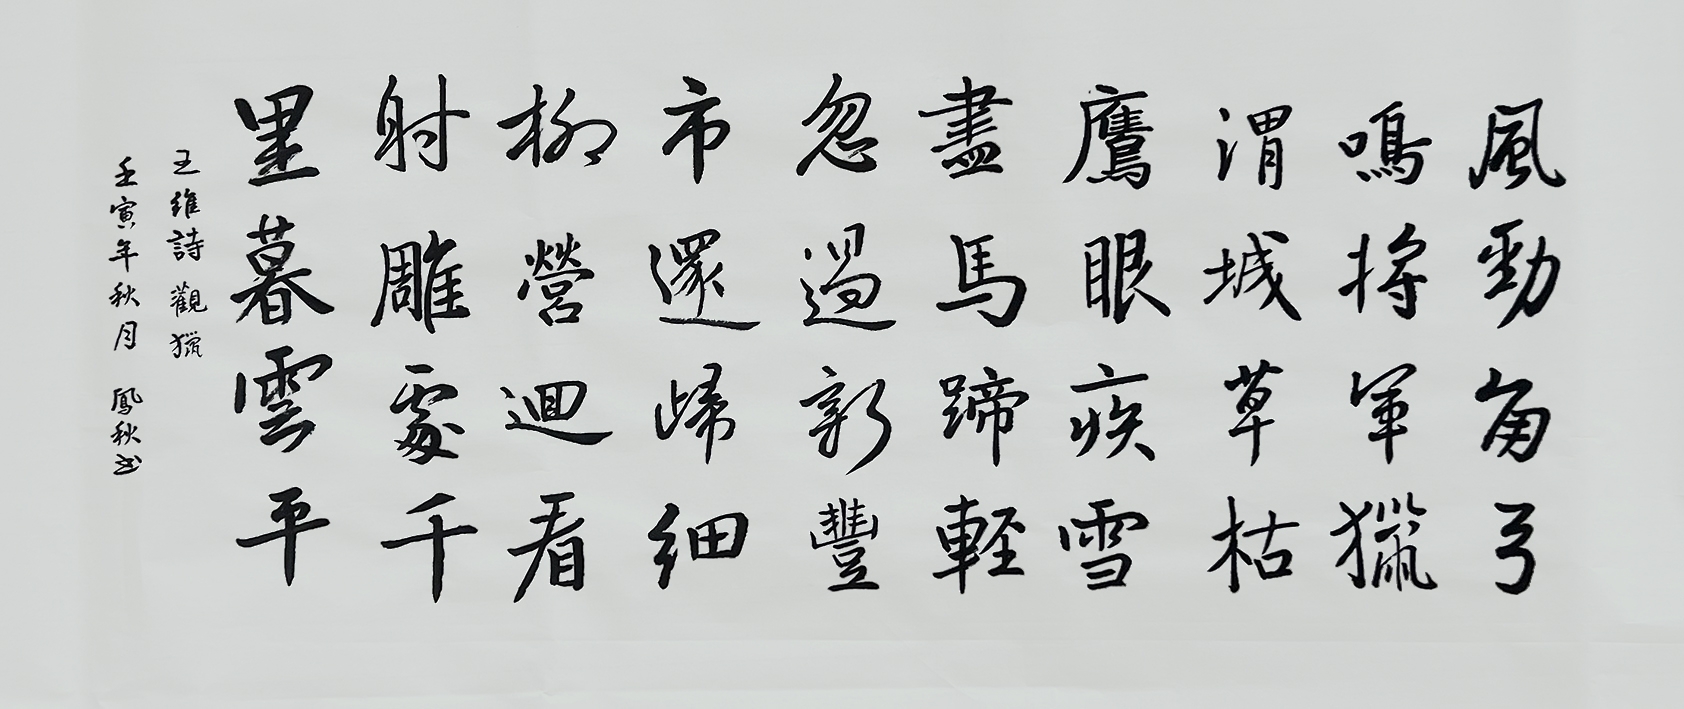 風勁角弓
鳴將軍獵
渭城草枯
鷹眼疾雪
盡馬蹄輕
忽過新豐
市還歸細
柳營迴看
射雕處千
里暮雲平
王維詩觀獵
壬寅年秋月 鳳秋書